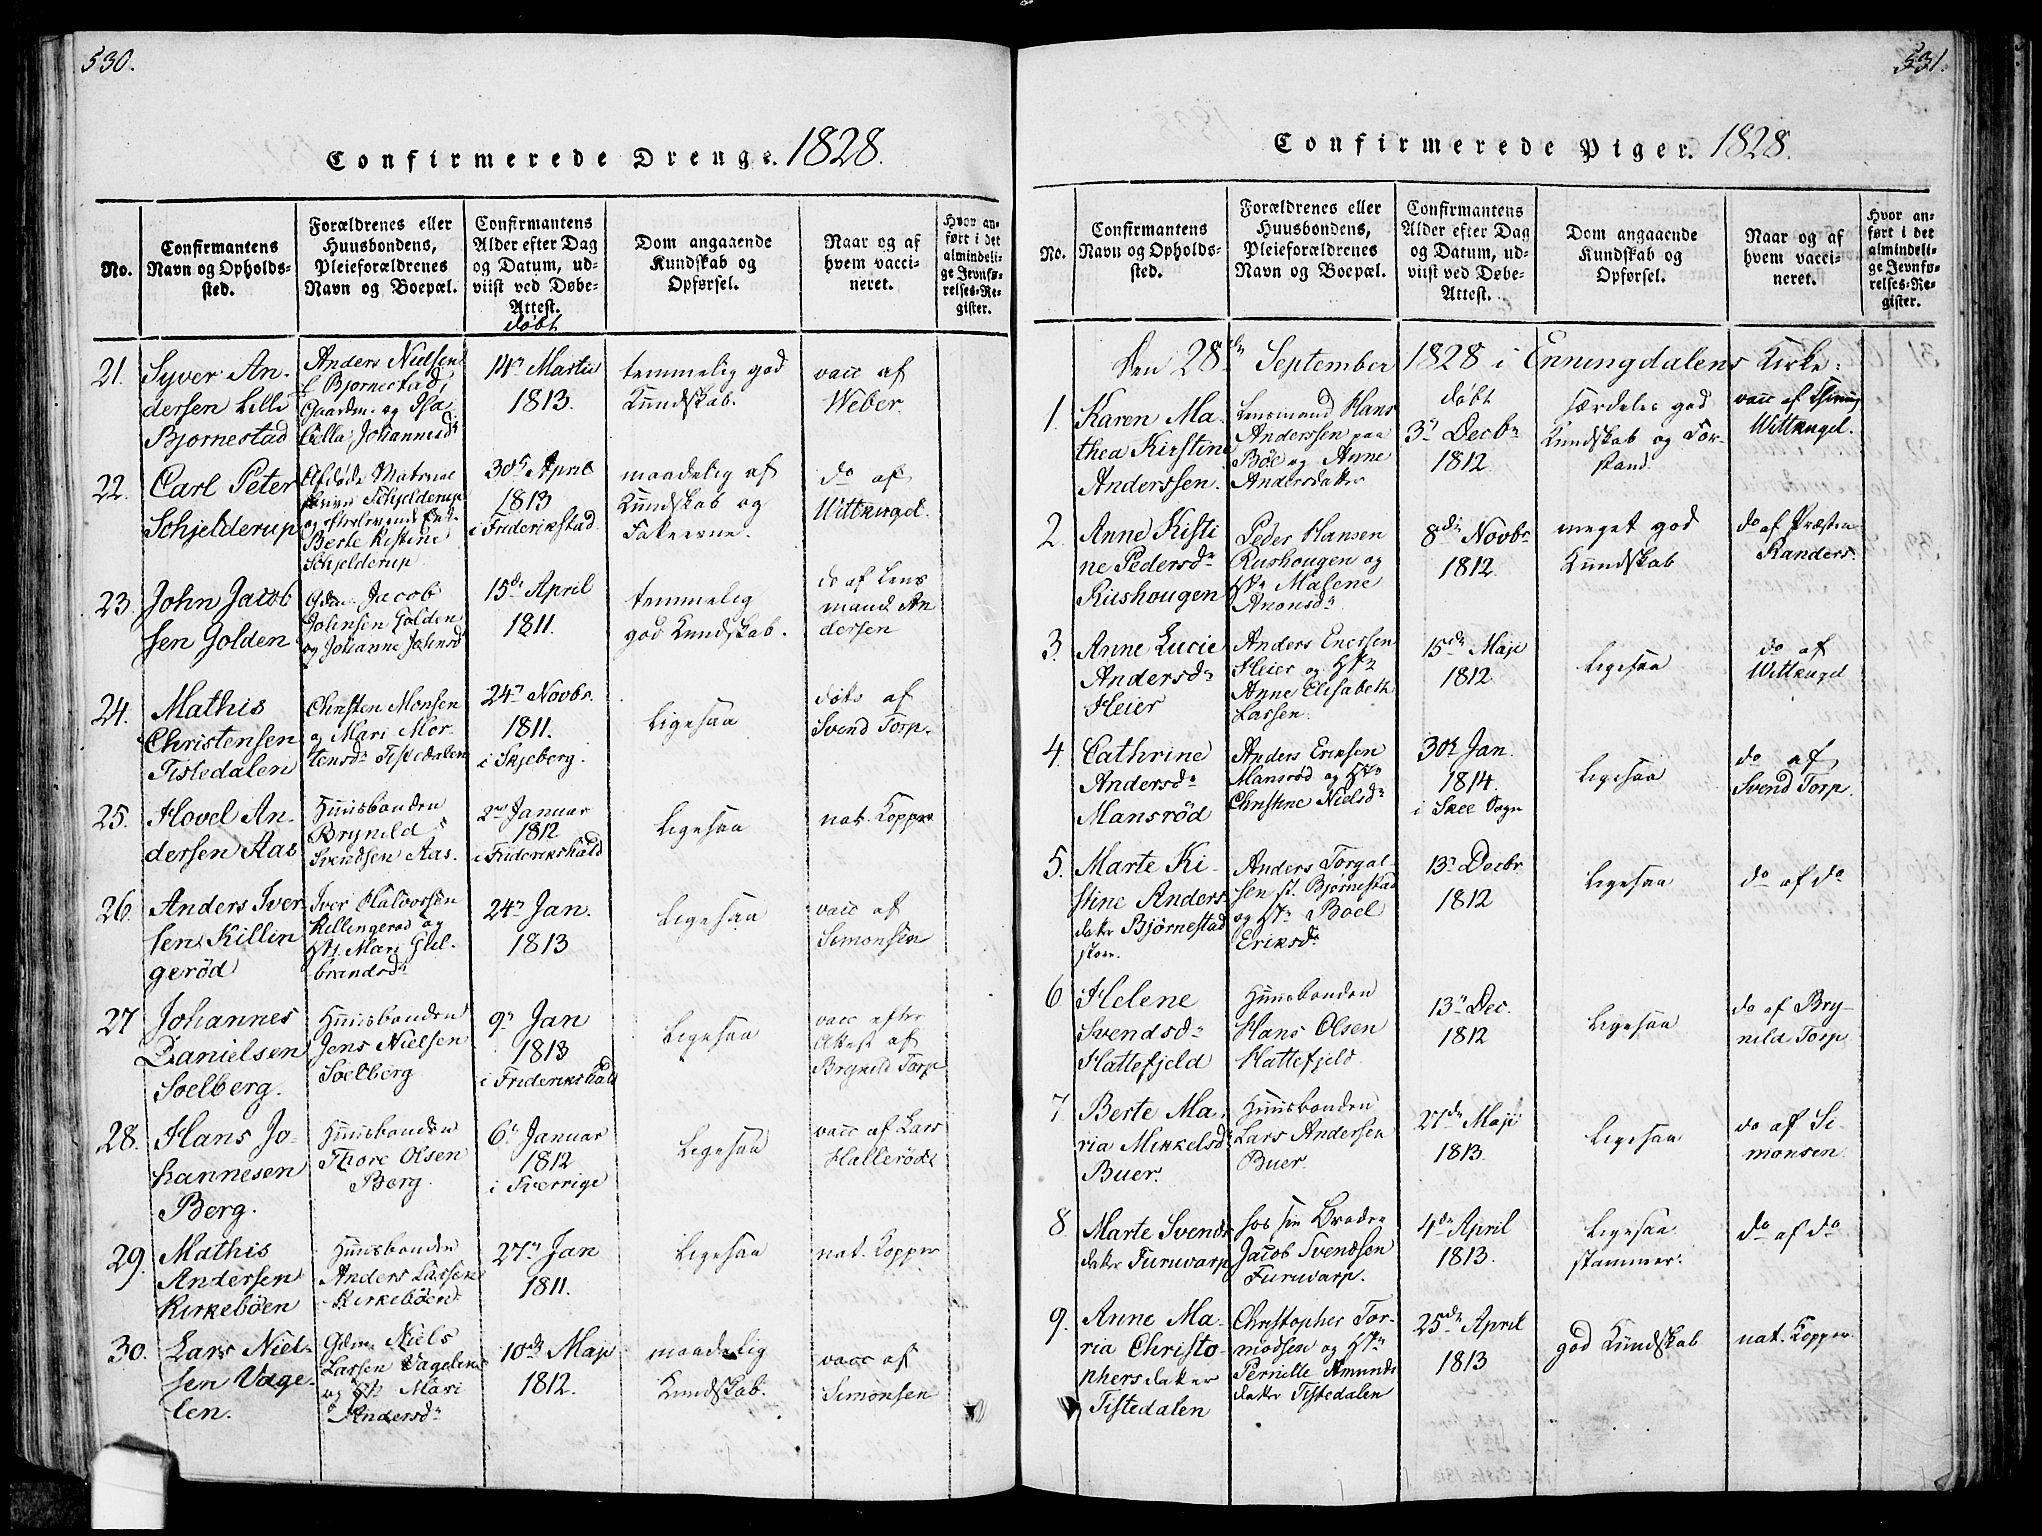 530.
Confirmerede Drenge. 1828.
No.
Confirmantens
Navn og Opholds-
sted.
Forældrenes eller
Huusbondens,
Pleieforældrenes
Navn og Boepæl.
Confirmantens
Alder efter Dag
og Datum, ud-
viist ved Døbe-
Attest.
døbt
Dom angaaende
Kundskab og
Opførsel.
Naar og af
hvem vacci-
neret.
Hvor an-
ført i det
almindeli-
ge Jevnfø-
relses-Re-
gister.
21.
Syver An-
dersen Lille
Bjornestad
Anders Nielsen
L Bjørnestad,
Gaardm. og
Johannesd
14 Martii
1813.
temmelig god
Kundskab.
vacc af
Weber.
22.
Carl Peter
Schjelderup
Afdøde
Schjelderup
og efterlevende Enke
Berte Kistine
Schjelderup
30 April
1813
i Friderikstad
maadelig af
Kundskab og
do af
Wittkugel.
23.
John Jacob
sen Golden
Jacob
Johnsen Golden
og Johanne Johnsd
15de April
1811.
temmelig
god Kundskab.
do af Lens
mand An
dersen
24.
Mathis
Christensen
Tistedalen
Christen Monsen
og Mari Mor
tensdr Tistedalen
24 Novbr.
1811.
i Skjeberg.
Ligesaa
dito af
Svend Torp.
25.
Hovel An-
dersen Aas
Huusbonden
Brynild
Svendsen Aas.
2 Januar
1812
i Friderikshald
Ligesaa
nat. Kopper
26.
Anders Iver
sen Killin
gerød
Iver Halvorsen
Killingerød og
H. Mari Gul-
brandsdr
24 Jan.
1813
Ligesaa
vacc af
Simonsen
27
Johannes
Danielsen
Soelberg.
Huusbonden
Jens Nielsen
Soelberg
9 Jan
1813
i Friderikshald
Ligesaa
vacc efter
Attest af
Brynild Torp
28.
Hans Jo-
hannesen
Berg.
Huusbonden
Thore Olsen
Berg.
6 Januar
1812
i Sverrige
Ligesaa
vacc af Lars
Hallerød
29.
Mathis
Andersen
Kirkebøen
Huusbonden
Anders Larsen
Kirkebøen
27 Jan
1811.
Ligesaa
nat. Kopper
30.
Lars Niel-
sen Vage-
len.
Gdm. Niels
Larsen Vagelen
og H. Mari
Andersdr
10de Maji
1812.
maadelig
Kundskab.
vacc af
Simonsen
531.
Confirmerede Piger. 1828.
No.
Confirmantens
Navn og Opholds-
sted.
Forældrenes eller
Huusbondens,
Pleieforældrenes
Navn og Boepæl.
Confirmantens
Alder efter Dag
og Datum, ud-
viist ved Døbe-
Attest.
Dom angaaende
Kundskab og
Opførsel.
Naar og af
hvem vacci-
neret.
Hvor an-
ført i det
almindeli-
ge Jevnfø-
relses-Re-
gister.
Den 28de September 1828 i Enningdalens Kirke.
1.
Karen Ma-
thea Kirstine
Anderssen.
Lensmand Hans
Anderssen paa
Bøe og Anne
Andersdatter
døbt
3 Decbr
1812
særdeles god
Kundskab og For-
stand.
vacc af
Wittkugel.
2.
Anne Kisti
ne Pedersdr
Rushougen
Peder Hansen
Rushougen og
H. Malene
Anonsdr
8de Novbr
1812
meget god
Kundskab
do af Præsten
Randers
3.
Anne Lucie
Andersdr
Heier
Anders Enersen
Heier og H.
Anne Elisabeth
Larsen.
15de Maji
1812.
Ligesaa
do af
Wittkugel
4.
Cathrine
Andersdr
Mansrød
Anders Eriksen
Mansrød og H.
Christine Nielsdr
30 Jan.
1814.
i Skee Sogn
Ligesaa
do af
Svend Torp.
5.
Marte Ki-
stine Anders
datter Bjørnestad
stor.
Anders Torgal-
sen st. Bjørnestad
og H. Boel
Eriksdr
13 Decbr
1812
Ligesaa
do af do
6
Helene
Svendsdr
Hattefjeld
Huusbonden
Hans Olsen
Hattefjeld.
13 Dec.
1812
Ligesaa
do af Bry-
nild Torp
7
Berte Ma-
ria Mikkelsdr
Buer.
Huusbonden
Lars Andersen
Buer.
27de Maji
1813.
Ligesaa
do af Si
monsen.
8
Marte Svends
datter Furuvarp
hos sin Broder
Jacob Svendsen
Furuvarp.
4de April
1813.
Ligesaa
stammer.
do af do
9.
Anne Ma-
ria Christo-
phersdatter
Tistedalen
Christopher Tor-
modsen og H.
Pernille Amunds
datter Tistedalen
25de April
1813
god Kundskab
nat. Kopper